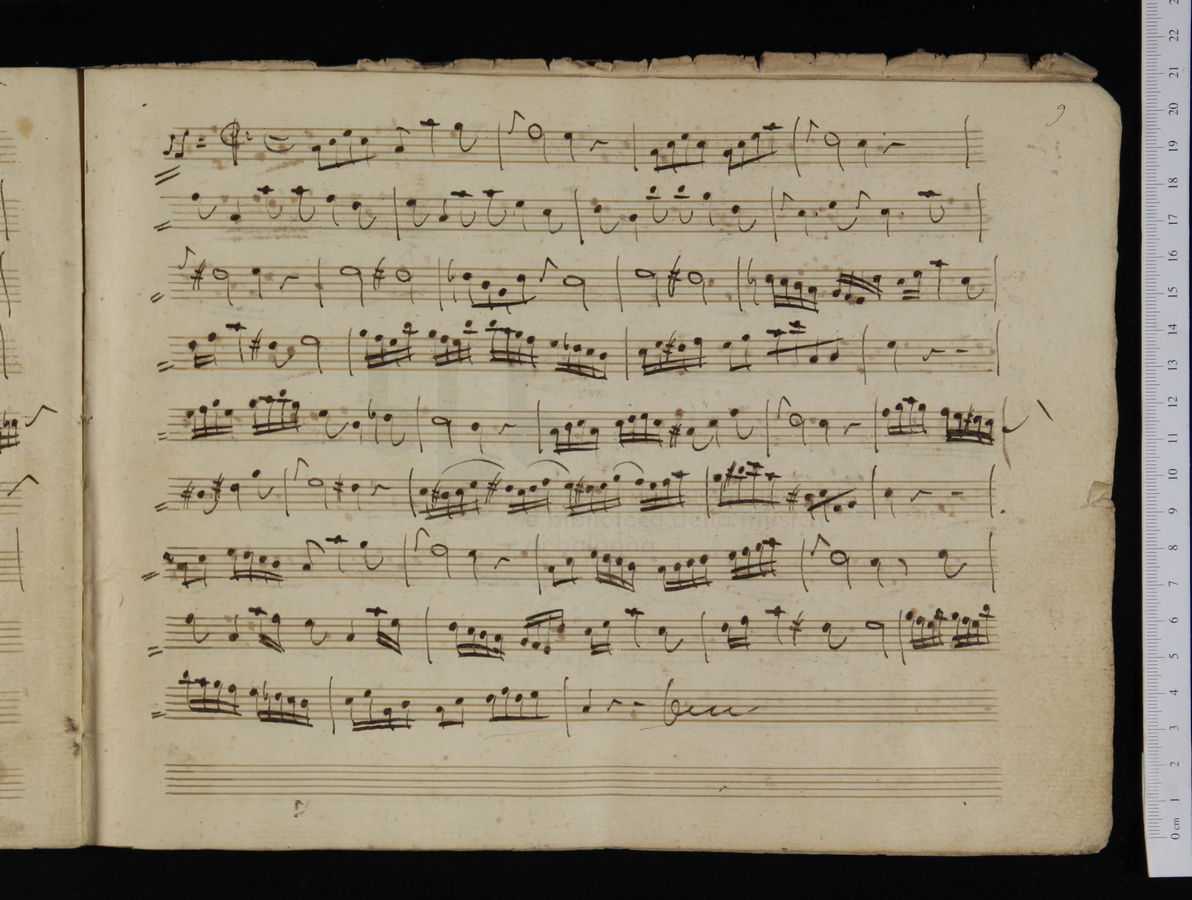 9
e biblioteca della musica
di bologna
22
21
20
19
18
17
16
15
14
13
12
11
10
9
8
7
6
5
4
3
2
1
0 cm